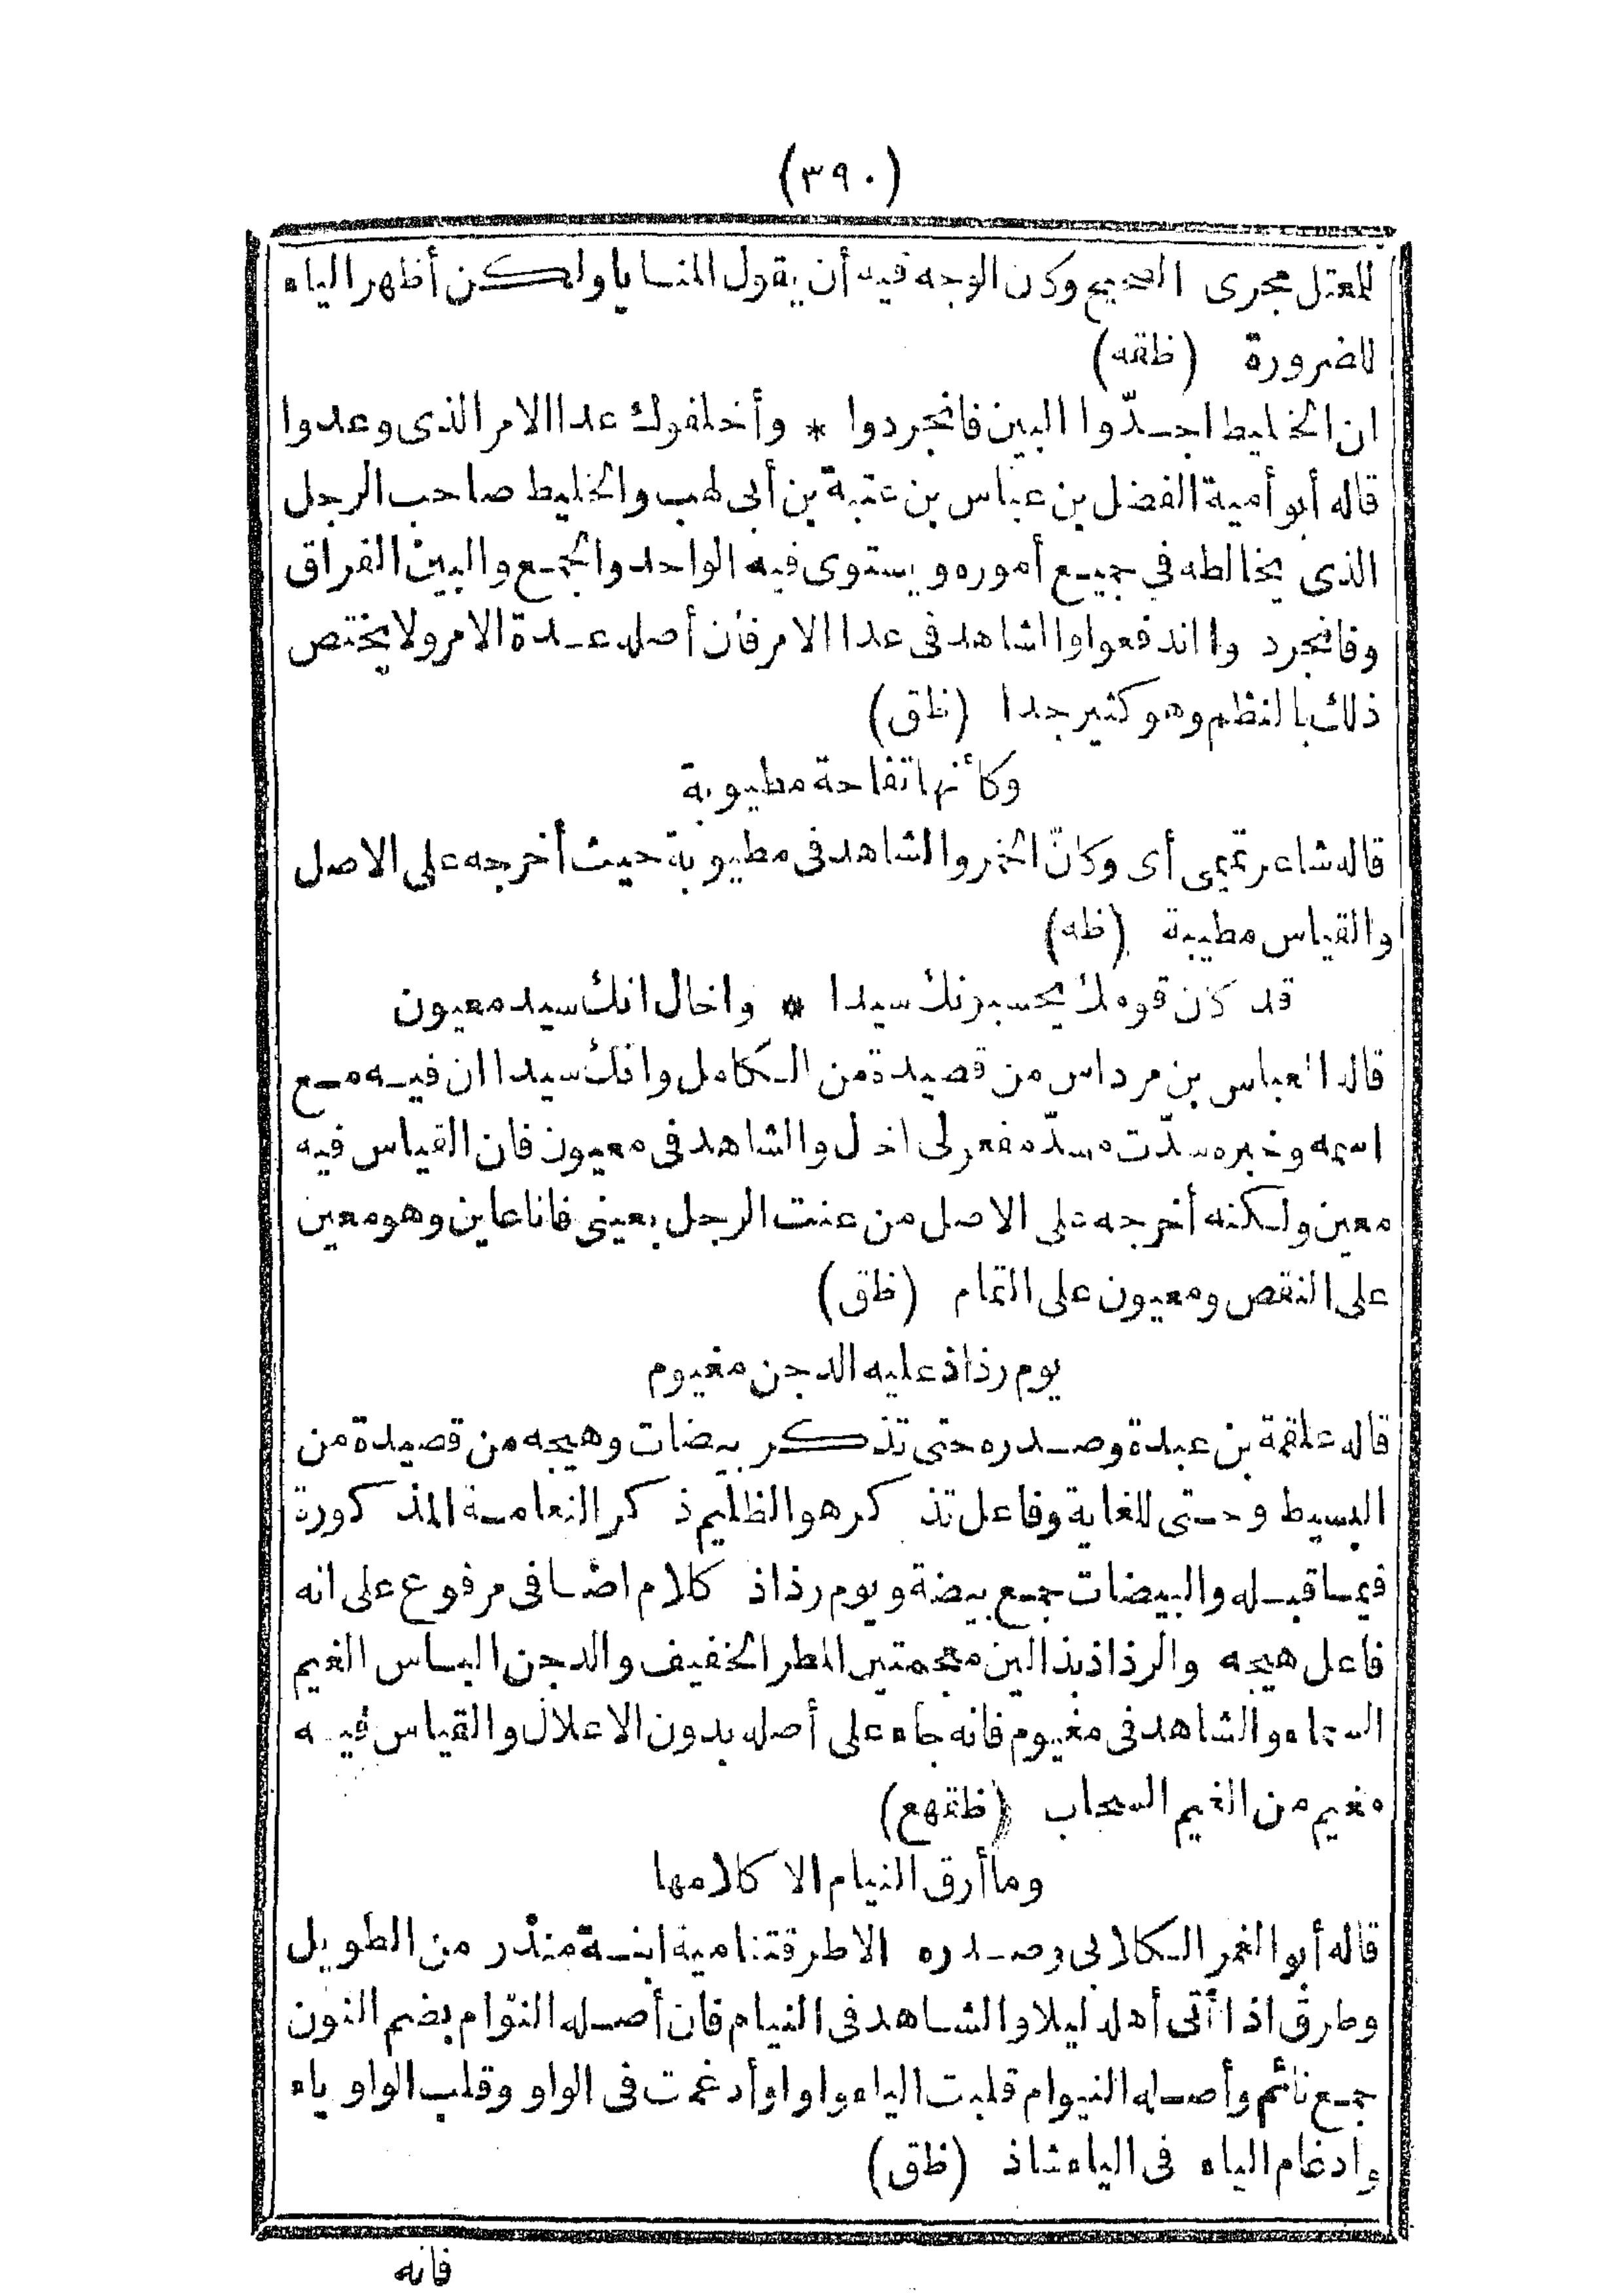 (٣٩٠)
للمعتل مجرى الصحيح وكان الوجه فيه أن يقول المنايا ولكن أظهر الياء
للضرورة (ظقه)
ان الخليط اجدّوا البين فانجردوا * وأخلفوك عدا الامر الذى وعدوا
قاله أبو أمية الفضل بن عباس بن عتبة بن أبى لهب والخليط صاحب الرجل
الذى يخالطه في جميع أموره ويستوى فيه الواحد والجمع والبين الفراق
وفانجرد وا اندفعوا والشاهد فى عدا الامر فان أصله عدة الامر ولا يختص
ذلك بالنظم وهو كثير جدا (ظق)
وكأنها تفاحة مطيوبة
قاله شاعر تميمى أى وكانّ الخمر والشاهد فى مطيوبة حيث أخرجه على الاصل
والقياس مطيبة (ظه)
قد كان قومك يحسبونك سيدا * واخال انك سيد معيون
قاله العباس بن مرداس من قصيدة من الكامل وانك سيدا ان فيه مع
اسمه وخبره سدّت مسدّ مفعولى اخال والشاهد فى معيون فان القياس فيه
معين ولكنه أخرجه على الاصل من عنت الرجل بعينى فانا عاين وهو معين
على النقص ومعيون على التمام (ظق)
يوم رذاذ عليه الدجن مغيوم
قاله علقمة بن عبدة وصدره حتى تذكر بيضات وهيجه من قصيدة من
البسيط وحتى للغاية وفاعل تذ كرهو الظليم ذ كر النعامة المذ كورة
فيما قبله والبيضات جمع بيضة ويوم رذاذ كلام اضافى مرفوع على انه
فاعل هيجه والرذاذ بذالين معجمتين المطر الخفيف والدجن الباس الغيم
السماء والشاهد فى مغيوم فانه جاء على أصله بدون الاعلال والقياس فيه
مغيم من الغيم السحاب (ظقهع)
وما أرق النيام الا كلامها
قاله أبو الغمر الكلابى وصدره الا طرقتنا مية ابنة منذر من الطويل
وطرق اذا أتى أهله ليلا والشاهد فى النيام فان أصله النوّام بضم النون
جمع نائم وأصله النيوام قلبت الياء واوا وأدغمت فى الواو وقلب الواو ياء
وادغام الياء فى الياء شاذ (ظق)
فانه